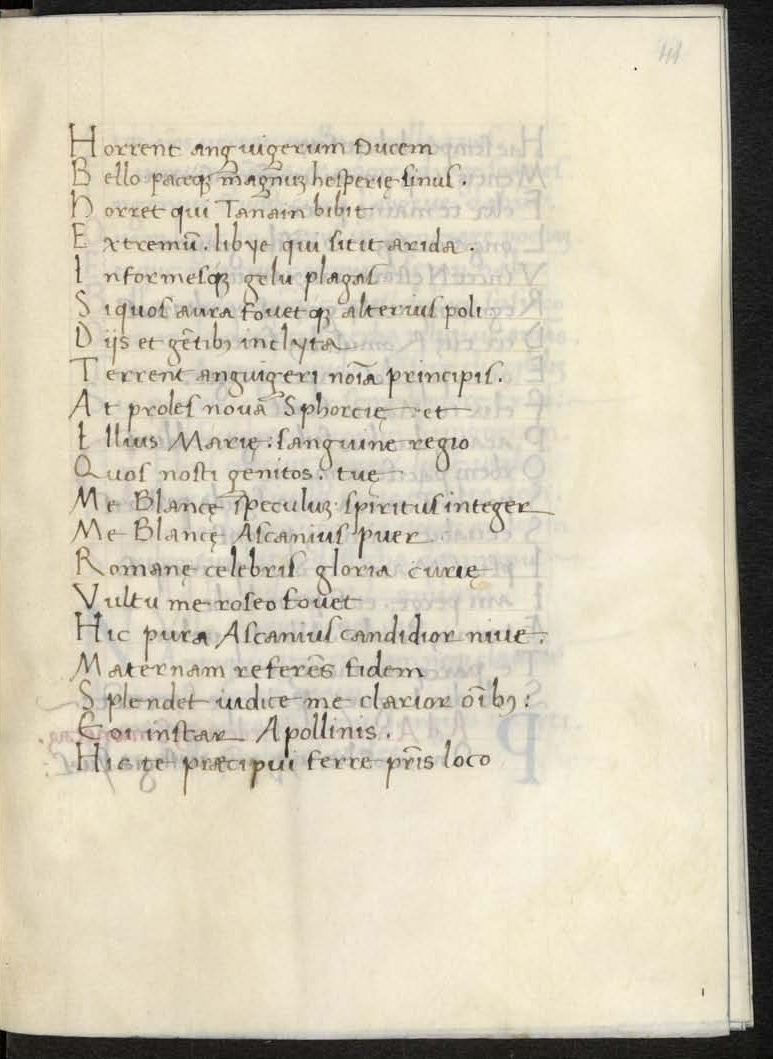 Horrent anguigerum Ducem
Bello paceqꝫ magnuꝫ hesperię sinus.
Horret qui Tanain bibit
Extremũ. libye qui sitit arida.
Informesqꝫ gelu plagas
Siquos aura fouetqꝫ alterius poli
Dijs et gẽtibꝯ inclyta
Terrent anguigeri noĩa principis.
At proles noua Sphorcię et
Illius Marię: sanguine regio
Quos nosti genitos: tuę
Me Blancę speculuꝫ: spiritus integer
Me Blancę Ascanius puer
Romanę celebris gloria curię
Vultu me roseo fouet
Hic pura Ascanius candidior niue.
Maternam referẽs fidem
Splendet iudice me clarior oĩbꝯ:
Eoi instar Apollinis.
Hic te præcipui ferre pr̃is loco